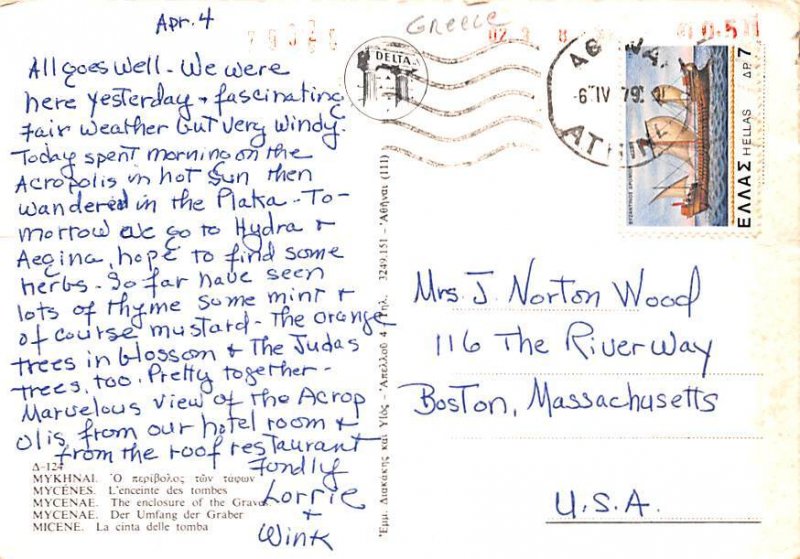 Apr. 4
All goes well - We were
here yesterday + fascinating
fair weather but very windy.
Today spent morning on the
Acropolis in hot sun then
wandered in the Plaka - To-
morrow we go to Hydra +
Aegina, hope to find some
herbs. So far have seen
lots of thyme some mint +
of course mustard - The orange
trees in blossom + The Judas
trees, too. Pretty together -
Marvelous view of the Acrop
olis from our hotel room +
from the roof restaurant
Fondly
Lorrie
+
Wink
Δ-124
ΜΥΚΗΝΑΙ. Ὁ περίβολος τῶν τάφων
MYCÉNES. L'enceinte des tombes
MYCENAE. The enclosure of the Graves
MYCENAE. Der Umfang der Graber
MICENE. La cinta delle tomba
Ἐμμ. Διακάκης καὶ Υἱὸς - Ἀπέλλου 4 Τηλ. 3249.151 - Ἀθῆναι (111)
Greece
DELTA
ΑΘΗΝΑΙ
-6 IV 79
ATHINAI
ΕΛΛΑΣ HELLAS ΔΡ 7
Mrs. J. Norton Wood
116 The Riverway
Boston, Massachusetts
U.S.A.